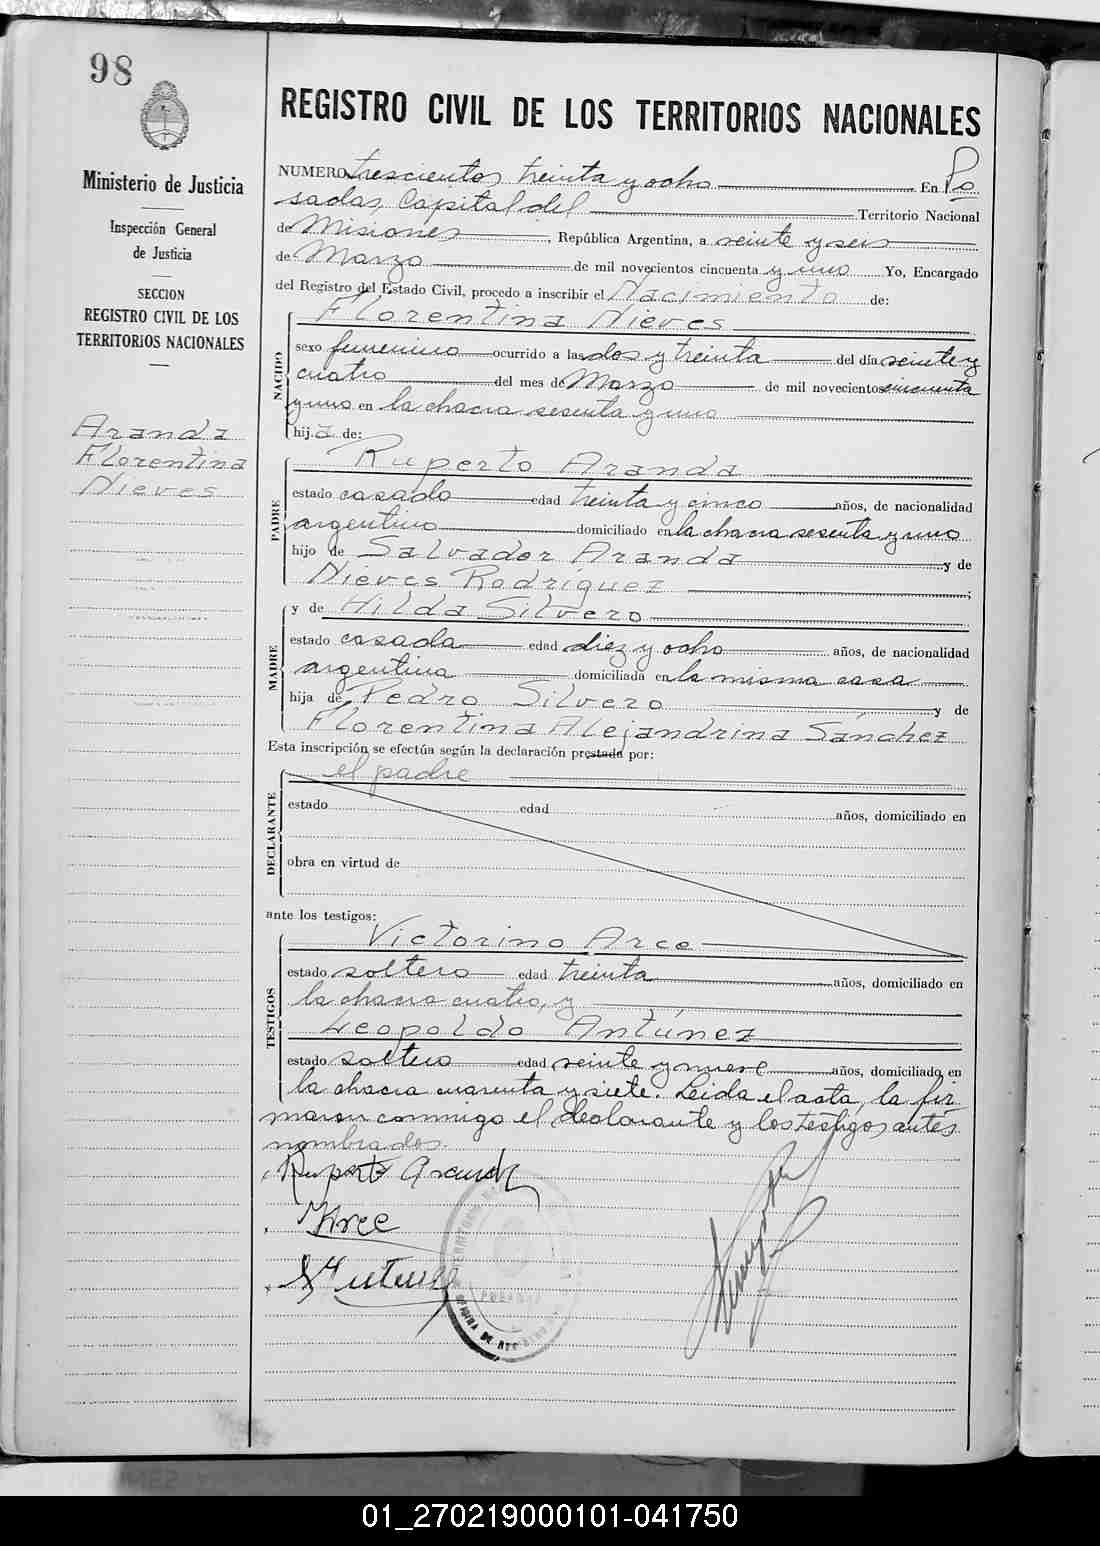 98
Ministerio de Justicia
Inspección General
de Justicia
SECCION
REGISTRO CIVIL DE LOS
TERRITORIOS NACIONALES
Aranda
Florentina
Nieves
REGISTRO CIVIL DE LOS TERRITORIOS NACIONALES
NUMERO trescientos treinta y ocho En Po
sadas, Capital del Territorio Nacional
de Misiones, República Argentina, a veinte y seis
de Marzo de mil novecientos cincuenta y uno Yo, Encargado
del Registro del Estado Civil, procedo a inscribir el Nacimiento de:
NACIDO
Florentina Nieves
sexo femenino ocurrido a las dos y treinta del día veinte y
cuatro del mes de Marzo de mil novecientos cincuenta
y uno en la chacra sesenta y uno
hija de:
PADRE
Ruperto Aranda
estado casado edad treinta y cinco años, de nacionalidad
argentino domiciliado en la chacra sesenta y uno
hijo de Salvador Aranda y de
Nieves Rodríguez ;
MADRE
y de Hilda Silvero
estado casada edad diez y ocho años, de nacionalidad
argentina domiciliada en la misma casa
hija de Pedro Silvero y de
Florentina Alejandrina Sánchez
Esta inscripción se efectúa según la declaración prestada por:
DECLARANTE
el padre
estado edad años, domiciliado en
obra en virtud de
ante los testigos:
TESTIGOS
Victorino Arce
estado soltero edad treinta años, domiciliado en
la chacra cuatro, y
Leopoldo Antúnez
estado soltero edad veinte y nueve años, domiciliado en
la chacra cuarenta y siete. Leida el acta, la fir
maron conmigo el declarante y los testigos antes
nombrados.
Ruperto Aranda
Arce
OFICINA DE
01_270219000101-041750